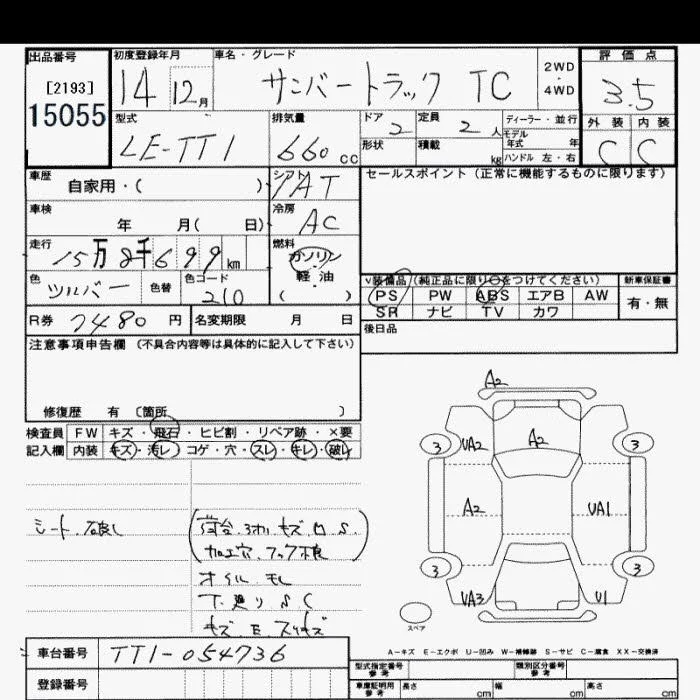 出品番号
[2193]
15055
初度登録年月
14 12月
車名・グレード
サンバートラック TC
2WD
・
4WD
評価点
3.5
外装 内装
C C
型式
LE-TT1
排気量
660 cc
ドア 2
定員 2 人
ディーラー・並行
モデル
年式 年
形状
積載 kg
ハンドル 左・右
車歴
自家用・( )
シフト
AT
セールスポイント (正常に機能するものに限ります)
車検
年 月( 日)
冷房
AC
走行
15万8千699 km
燃料
ガソリン
軽・油
( )
色
シルバー
色替
色コード
210
v装備品 (純正品に限り○をつけてください)
新車保証書
PS PW ABS エアB AW
SR ナビ TV カワ
有・無
R券 7480 円
名変期限 月 日
後日品
注意事項申告欄 (不具合内容等は具体的に記入して下さい)
修復歴 有 〔箇所 〕
検査員
記入欄
FW キズ・飛石・ヒビ割・リペア跡・×要
内装 キズ・汚レ・コゲ・穴・スレ・キレ・破レ
シート破レ
キズ
オイルモレ
下廻りSC
A2
3 VA2 A2 3
A2 VA1
3 3
VA3 U1
スペア
A-キズ E-エクボ U-凹み W-補修跡 S-サビ C-腐食 XX-交換済
車台番号 TT1-054736
登録番号
型式指定番号
参考
類別区分番号
参考
車庫証明用
参考
長さ cm 幅 cm 高さ cm